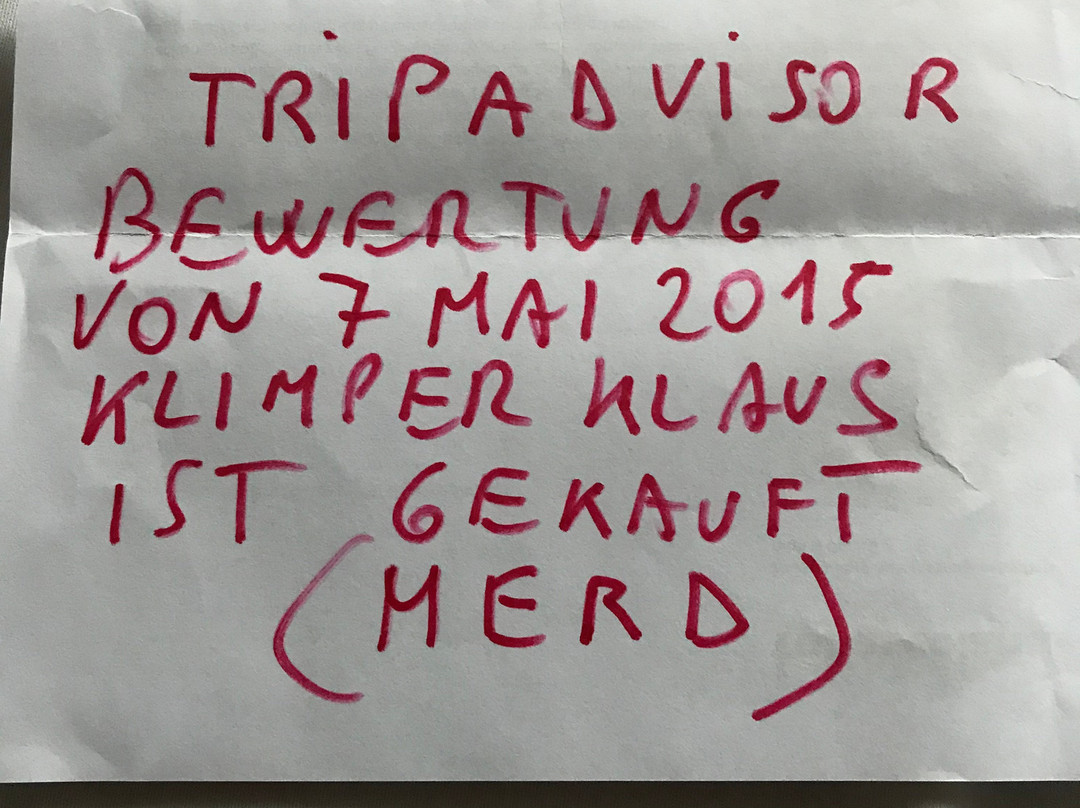 TRiPADViSOR
BEWERTUNG
VON 7 MAI 2015
KLIMPER KLAUS
IST GEKAUFT
(MERD)